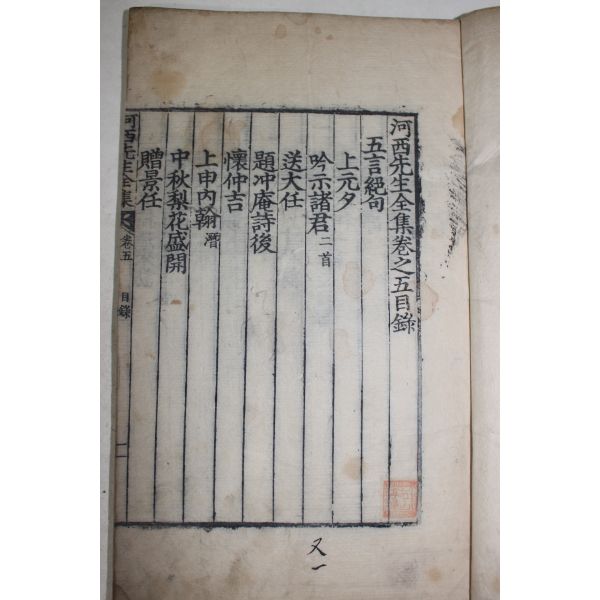 河西先生全集卷之五目錄
五言絕句
上元夕
吟示諸君二首
送大任
題冲庵詩後
懷仲吉
上申內翰濳
中秋梨花盛開
贈景任
河西先生全集 卷五 目錄 一
又一